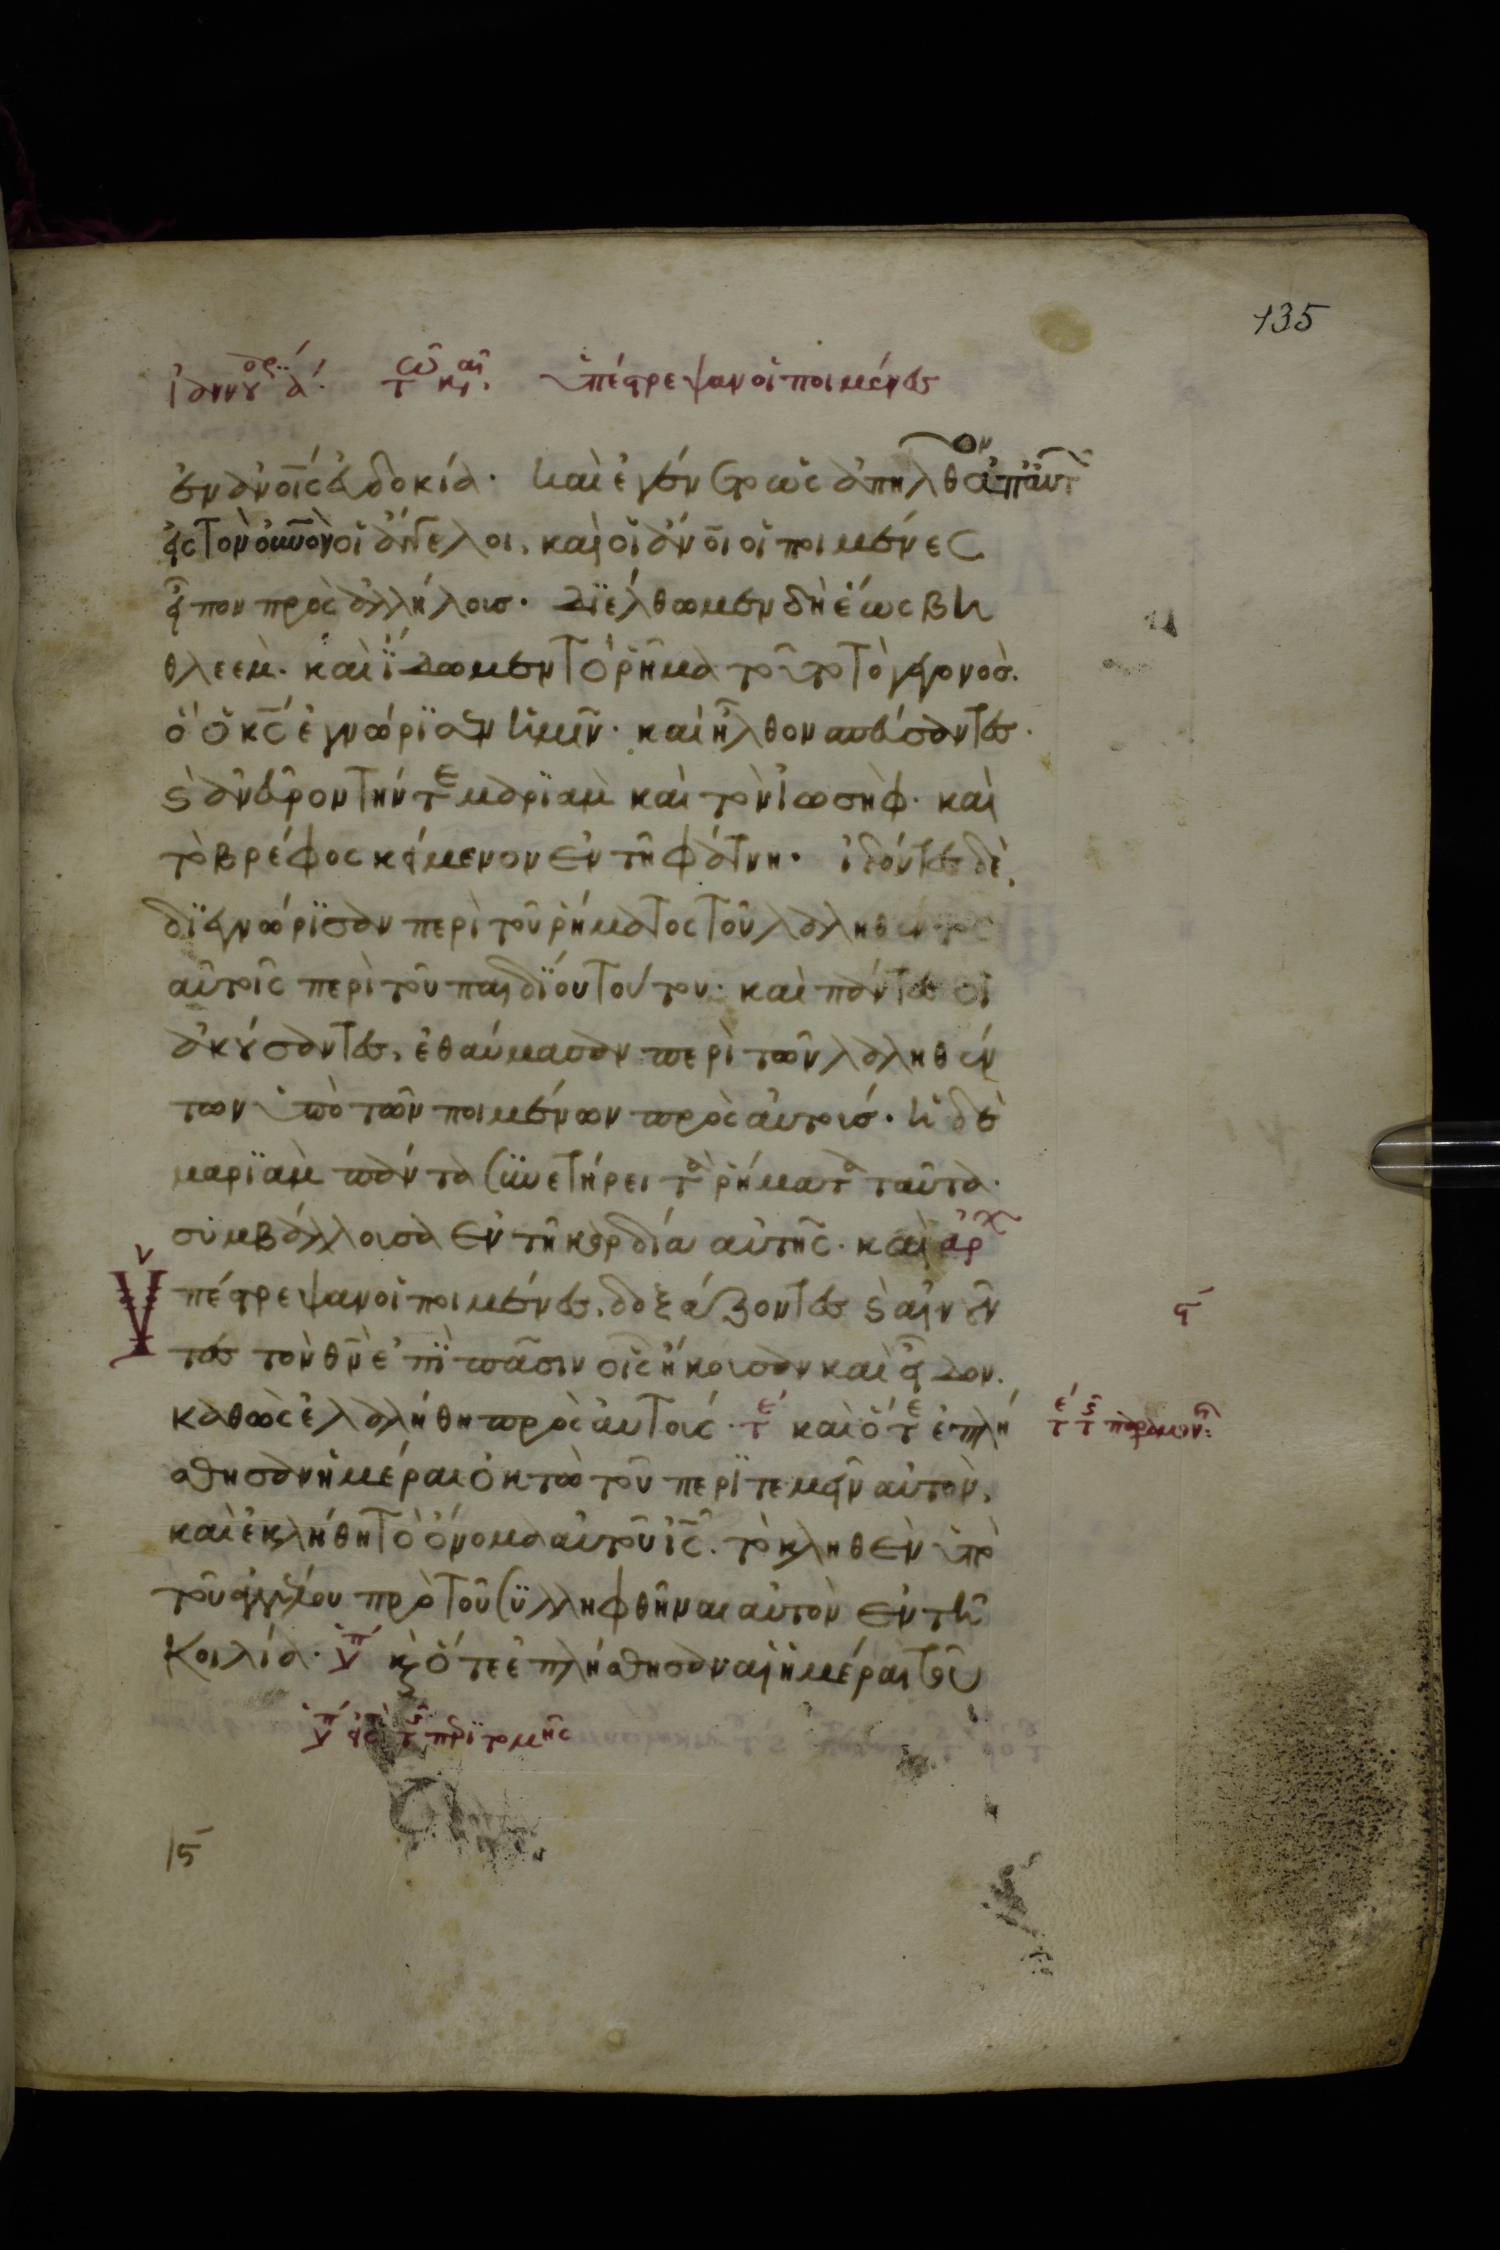 135
ἰαννου α´ τω καιρ. ὑπέστρεψαν οἱ ποιμένες
ἐν ἀνοῖς εὐδοκία· καὶ ἐγένετο ὡς ἀπῆλθον ἀπ αὐτ
εἰς τὸν οὐνὸν οἱ ἄγγελοι, καὶ οἱ ἄνοι οἱ ποιμένες
εἶπον πρὸς ἀλλήλους· διέλθωμεν δὴ ἕως βη
θλεὲμ· καὶ ἴδωμεν τὸ ῥῆμα τοῦτο τὸ γεγονὸς.
ὃ ὁ κς ἐγνώρισεν ἡμῖν· καὶ ἦλθον σπεύσαντες·
καὶ ἀνεῦρον τήν τε μαριὰμ καὶ τὸν ἰωσὴφ· καὶ
τὸ βρέφος κείμενον ἐν τῆ φάτνη· ἰδόντες δὲ,
διεγνώρισαν περὶ τοῦ ῥήματος τοῦ λαληθέντος
αὐτοῖς περὶ τοῦ παιδίου τούτου· καὶ πάντες οἱ
ἀκούσαντες, ἐθαύμασαν περὶ τῶν λαληθέν
των ὑπὸ τῶν ποιμένων πρὸς αὐτούς· ἡ δὲ
μαριὰμ πάντα συνετήρει τὰ ῥήματα ταῦτα·
συμβάλλουσα ἐν τῆ καρδία αὐτῆς· καὶ αρχ
Ὑπέστρεψαν οἱ ποιμένες, δοξάζοντες καὶ αἰνοῦν
τες τὸν θν ἐπὶ πᾶσιν οἷς ἤκουσαν καὶ εἶδον.
καθὼς ἐλαλήθη πρὸς αὐτούς· τε καὶ ὅτε ἐπλή
σθησαν ἡμέραι ὀκτὼ τοῦ περιτεμεῖν αὐτὸν,
καὶ ἐκλήθη τὸ ὄνομα αὐτοῦ ις· τὸ κληθὲν ὑπὸ
τοῦ ἀγγέλου πρὸ τοῦ συλληφθῆναι αὐτὸν ἐν τῆ
κοιλία· ὑπ κ ὅτε ἐπλήσθησαν αἱ ἡμέραι τοῦ
ὑπ εἰς τ πριτομῆς